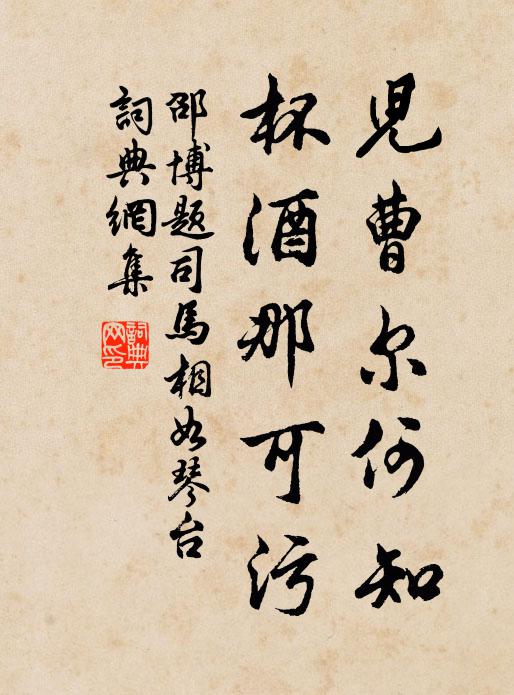 児曹尔何知
杯酒那可污
邵博题司馬相如琴台
詞典網集
詞典網印